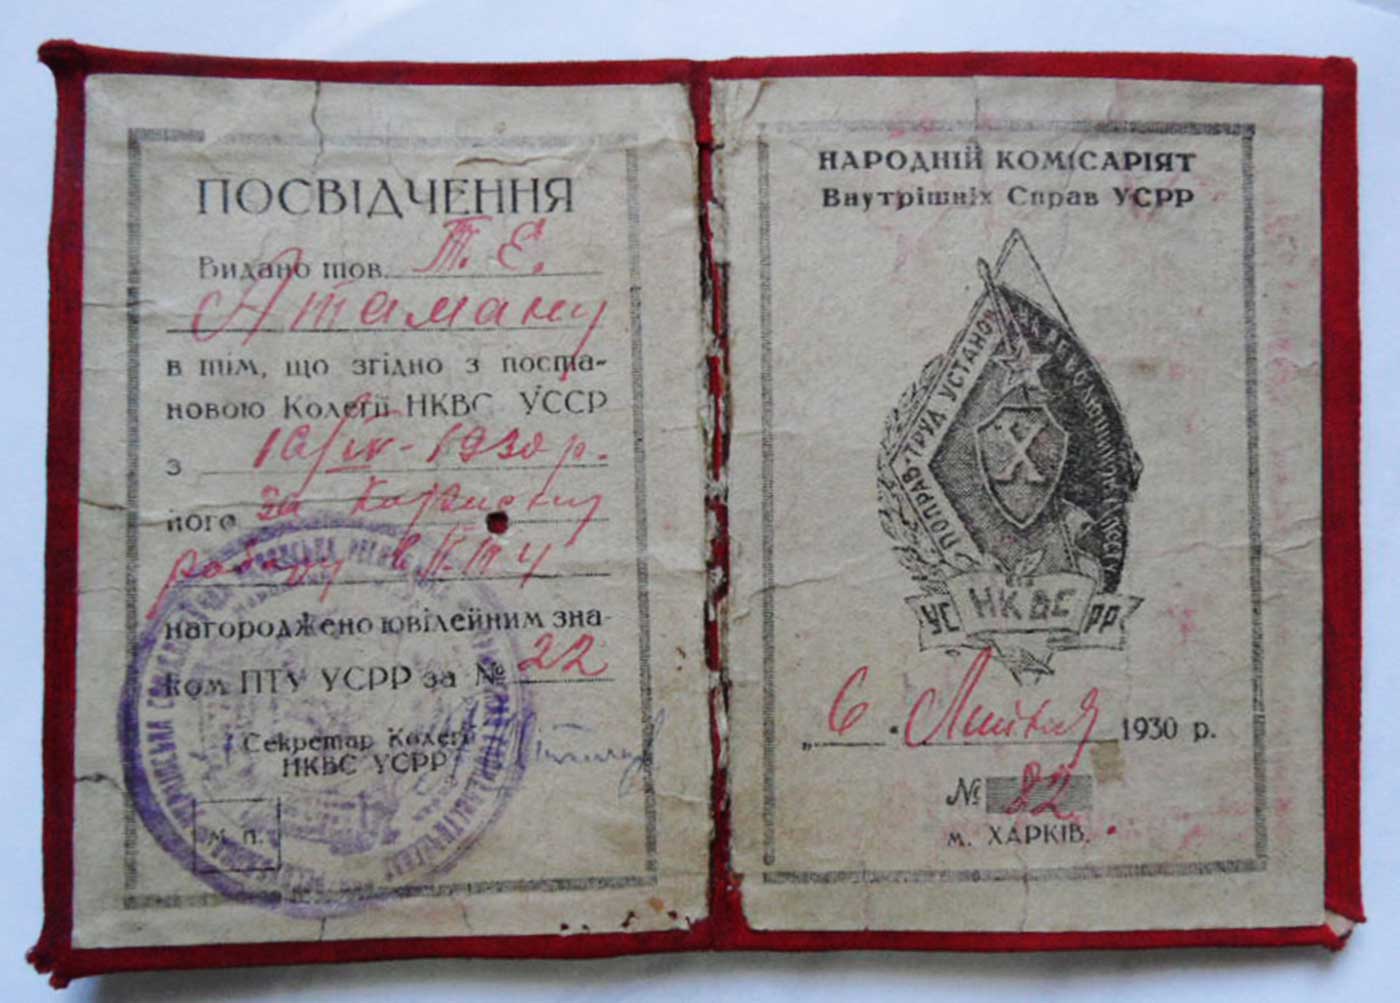 ПОСВІДЧЕННЯ
Видано тов. Т. Е.
Атаману
в тім, що згідно з поста-
новою Колегії НКВС УССР
з 10/IV - 1930 р.
його за корисну
роботу в ПТУ
нагороджено ювілейним зна-
ком ПТУ УСРР за № 22
Секретар Колегії
НКВС УСРР
м. п.
НАРОДНІЙ КОМІСАРІЯТ
Внутрішніх Справ УСРР
ПОПРАВ-ТРУД УСТАНОВ
X
НКВС
УС РР
„ 6 “ Липня 1930 р.
№ 22
м. ХАРКІВ.